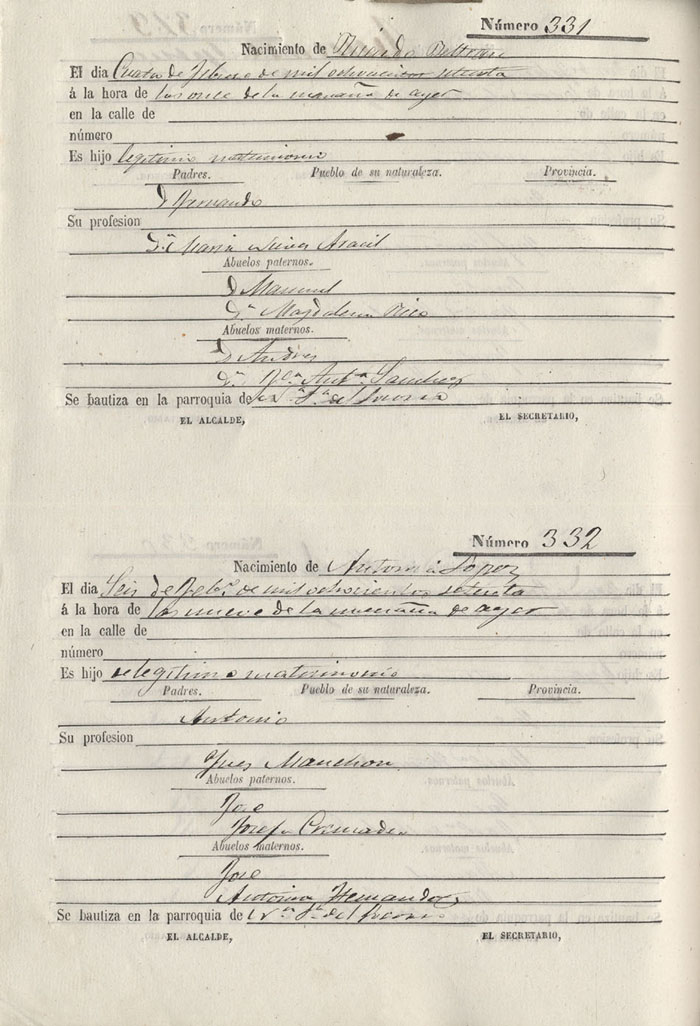 Número 331
Nacimiento de Ricardo Beltran
El dia Cuatro de Febrero de mil ochocientos setenta
á la hora de las once de la mañana de ayer
en la calle de
número
Es hijo legitimo matrimonio
Padres. Pueblo de su naturaleza. Provincia.
D Armando
Su profesion
D.ª Maria Aracil
Abuelos paternos.
D Manuel
D.ª Magdalena Rico
Abuelos maternos.
D Andres
D.ª Ant.ª Sanchez
Se bautiza en la parroquia de
EL ALCALDE, EL SECRETARIO,
Número 332
Nacimiento de Antonia Lopez
El dia Seis de Feb.º de mil ochocientos setenta
á la hora de las nueve de la mañana de ayer
en la calle de
número
Es hijo de legitimo matrimonio
Padres. Pueblo de su naturaleza. Provincia.
Antonio
Su profesion
Ynes Manchon
Abuelos paternos.
Jose
Josefa Cremades
Abuelos maternos.
Jose
Antonia Hernandez
Se bautiza en la parroquia de
EL ALCALDE, EL SECRETARIO,